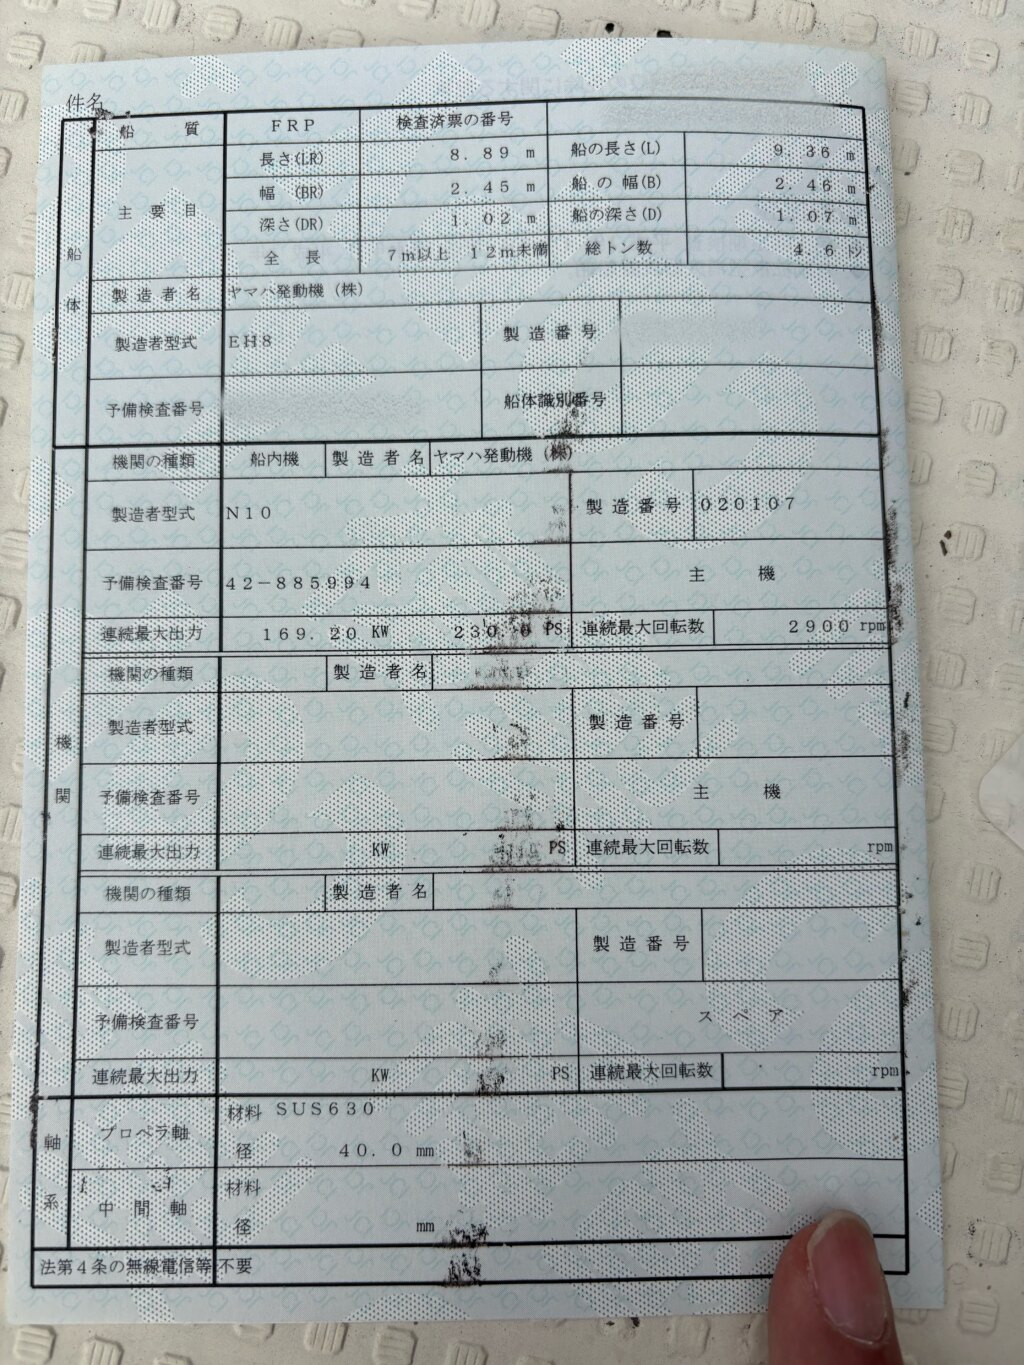 件名
船体
船質 FRP 検査済票の番号
主要目 長さ(LR) 8.89 m 船の長さ(L) 9.36 m
幅 (BR) 2.45 m 船の幅(B) 2.46 m
深さ(DR) 1.02 m 船の深さ(D) 1.07 m
全長 7m以上 12m未満 総トン数 4.6 トン
製造者名 ヤマハ発動機(株)
製造者型式 EH8 製造番号
予備検査番号 船体識別番号
機関
機関の種類 船内機 製造者名 ヤマハ発動機(株)
製造者型式 N10 製造番号 020107
予備検査番号 42-885994 主機
連続最大出力 169.20 KW 230.0 PS 連続最大回転数 2900 rpm
機関の種類 製造者名
製造者型式 製造番号
予備検査番号 主機
連続最大出力 KW PS 連続最大回転数 rpm
機関の種類 製造者名
製造者型式 製造番号
予備検査番号 スペア
連続最大出力 KW PS 連続最大回転数 rpm
軸系
プロペラ軸 材料 SUS630
径 40.0 mm
中間軸 材料
径 mm
法第4条の無線電信等 不要